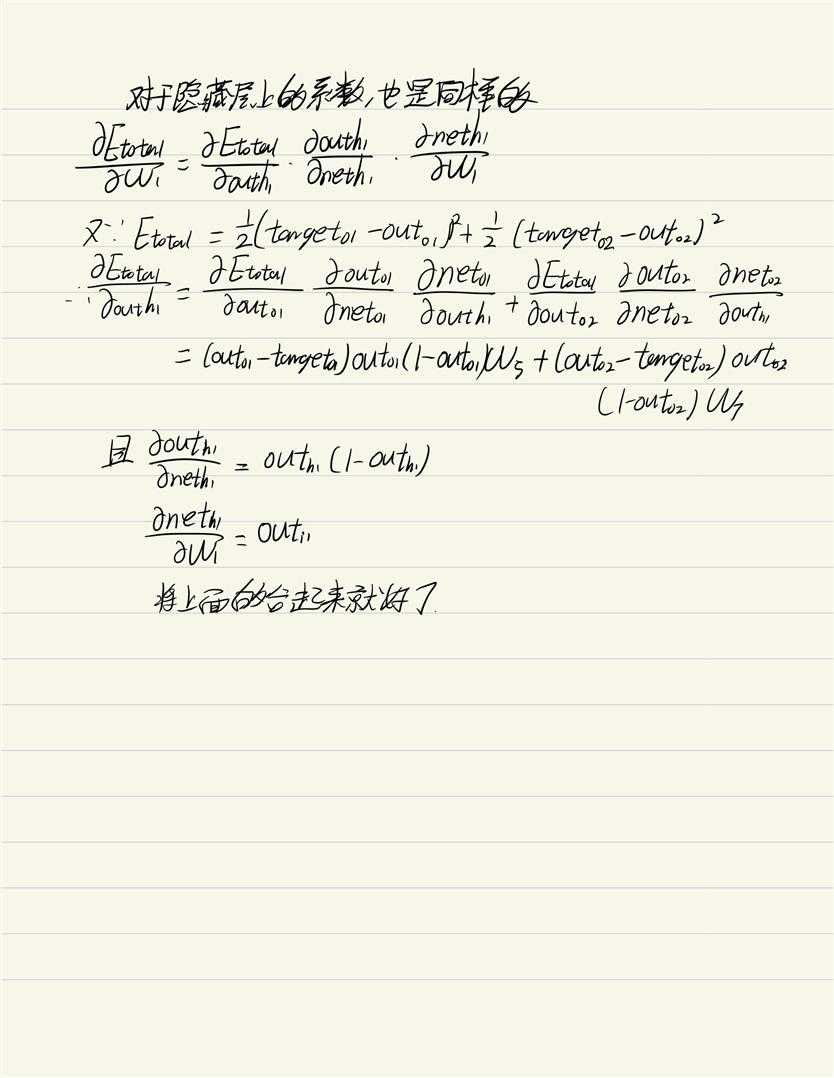 对于隐藏层上的系数,也是同样的
∂Etotal/∂W₁ = ∂Etotal/∂outh₁ · ∂outh₁/∂neth₁ · ∂neth₁/∂W₁
又∵ Etotal = ½(targeto1 - outo1)² + ½(targeto2 - outo2)²
∴ ∂Etotal/∂outh₁ = ∂Etotal/∂outo1 ∂outo1/∂neto1 ∂neto1/∂outh₁ + ∂Etotal/∂outo2 ∂outo2/∂neto2 ∂neto2/∂outh₁
= (outo1 - targeto1) outo1 (1-outo1) W₅ + (outo2 - targeto2) outo2
(1-outo2) W₇
且 ∂outh₁/∂neth₁ = outh₁ (1-outh₁)
∂neth₁/∂W₁ = outi₁
将上面的合起来就好了.